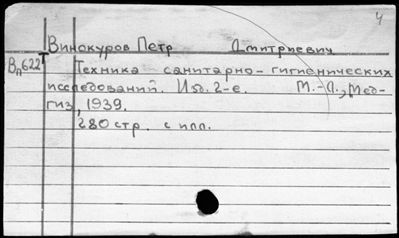 4
Винокуров Петр Дмитриевич
Вп622 Техника санитарно-гигиенических
исследований. Изд. 2-е. М.-Л., Мед-
гиз, 1939.
280 стр. с илл.